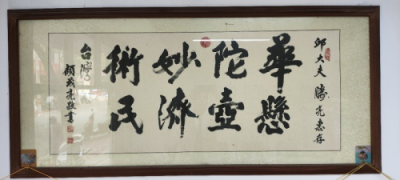 邱大夫 勝亮惠存
華陀妙術
懸壺濟民
台灣
敬書